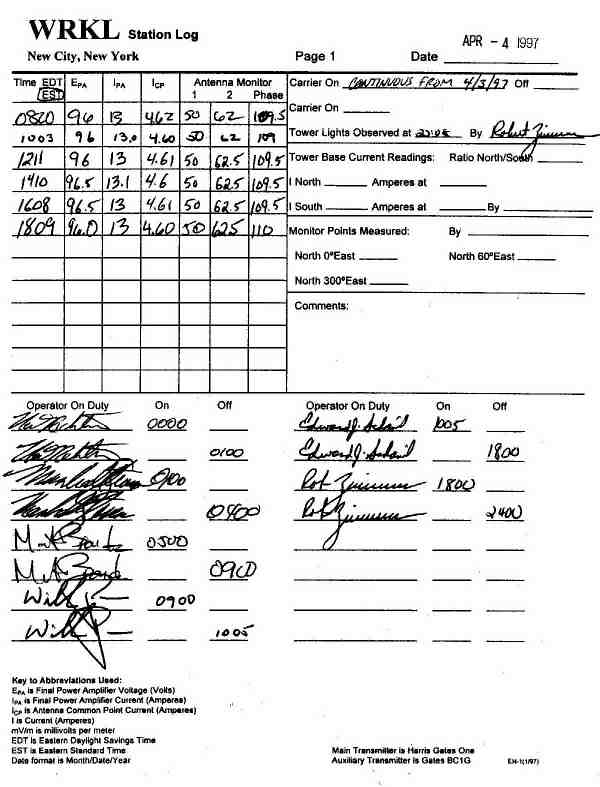 WRKL Station Log
New City, New York Page 1 Date APR - 4 1997
Time EDT EST EPA IPA ICP Antenna Monitor 1 2 Phase
0820 96 13 4.62 50 62 109.5
1003 96 13.0 4.60 50 62 109
1211 96 13 4.61 50 62.5 109.5
1410 96.5 13.1 4.6 50 62.5 109.5
1608 96.5 13 4.61 50 62.5 109.5
1809 96.0 13 4.60 50 62.5 110
Carrier On CONTINUOUS FROM 4/3/97 Off
Carrier On
Tower Lights Observed at By Robert
Tower Base Current Readings: Ratio North/South
I North Amperes at
I South Amperes at By
Monitor Points Measured: By
North 0°East North 60°East
North 300°East
Comments:
Operator On Duty On Off
0000
0100
0100
0500
0900
0900
1005
Operator On Duty On Off
Edward J. 1005
Edward J. 1800
Rob 1800
Rob 2400
Key to Abbreviations Used:
EPA is Final Power Amplifier Voltage (Volts)
IPA is Final Power Amplifier Current (Amperes)
ICP is Antenna Common Point Current (Amperes)
I is Current (Amperes)
mV/m is millivolts per meter
EDT is Eastern Daylight Savings Time
EST is Eastern Standard Time
Date format is Month/Date/Year
Main Transmitter is Harris Gates One
Auxiliary Transmitter is Gates BC1G EN-1(1/97)